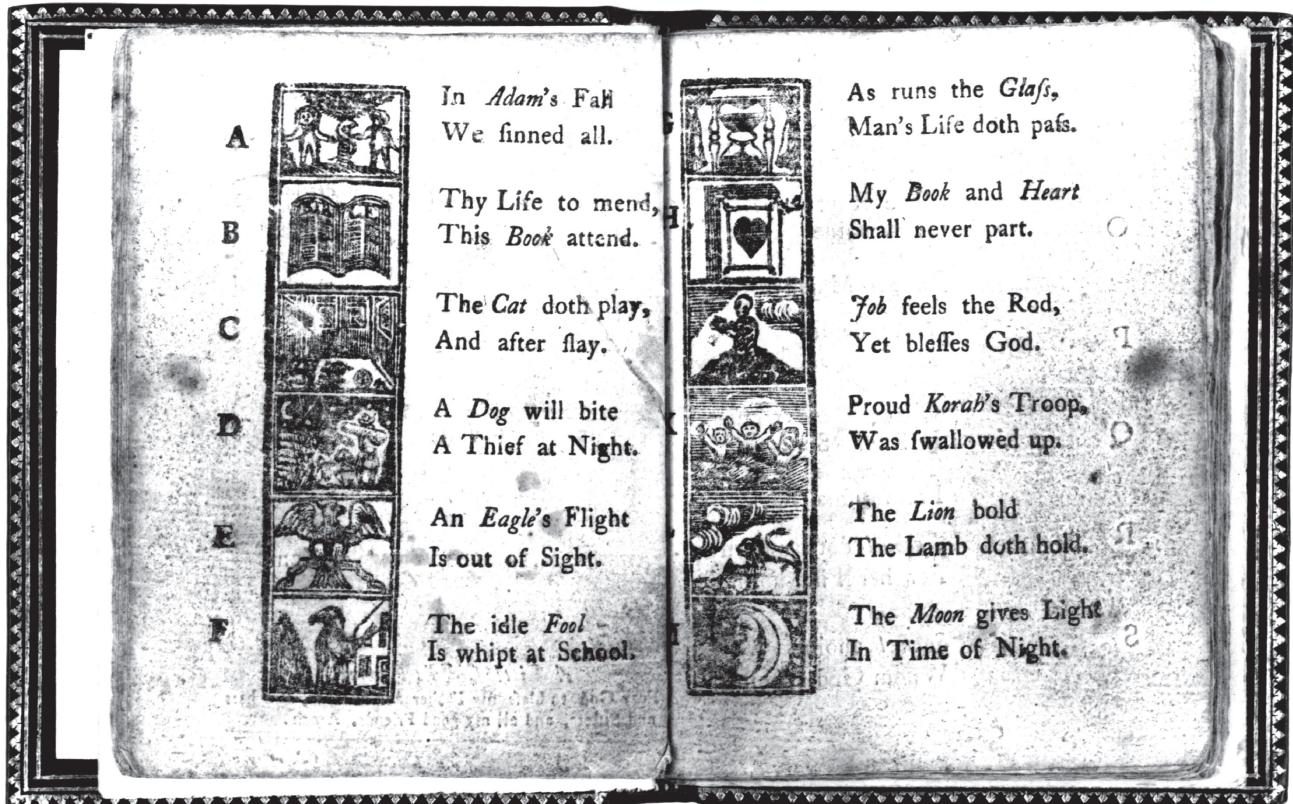 A
In Adam's Fall
We ſinned all.
B
Thy Life to mend,
This Book attend.
C
The Cat doth play,
And after ſlay.
D
A Dog will bite
A Thief at Night.
E
An Eagle's Flight
Is out of Sight.
F
The idle Fool
Is whipt at School.
G
As runs the Glaſs,
Man's Life doth paſs.
H
My Book and Heart
Shall never part.
Job feels the Rod,
Yet bleſſes God.
K
Proud Korah's Troop,
Was ſwallowed up.
The Lion bold
The Lamb doth hold.
M
The Moon gives Light
In Time of Night.